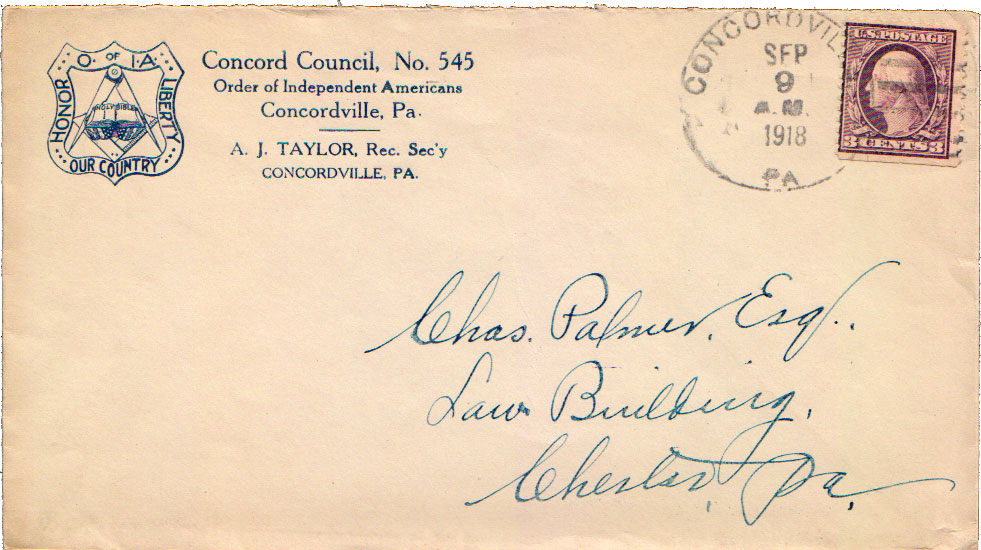 O. OF I.A.
HONOR
LIBERTY
HOLY BIBLE
OUR COUNTRY
Concord Council, No. 545
Order of Independent Americans
Concordville, Pa.
A. J. TAYLOR, Rec. Sec'y
CONCORDVILLE, PA.
CONCORDVILLE
SEP
9
A.M.
1918
PA
U.S. POSTAGE
3 CENTS 3
Chas. Palmer, Esq.,
Law Building,
Chester, Pa,